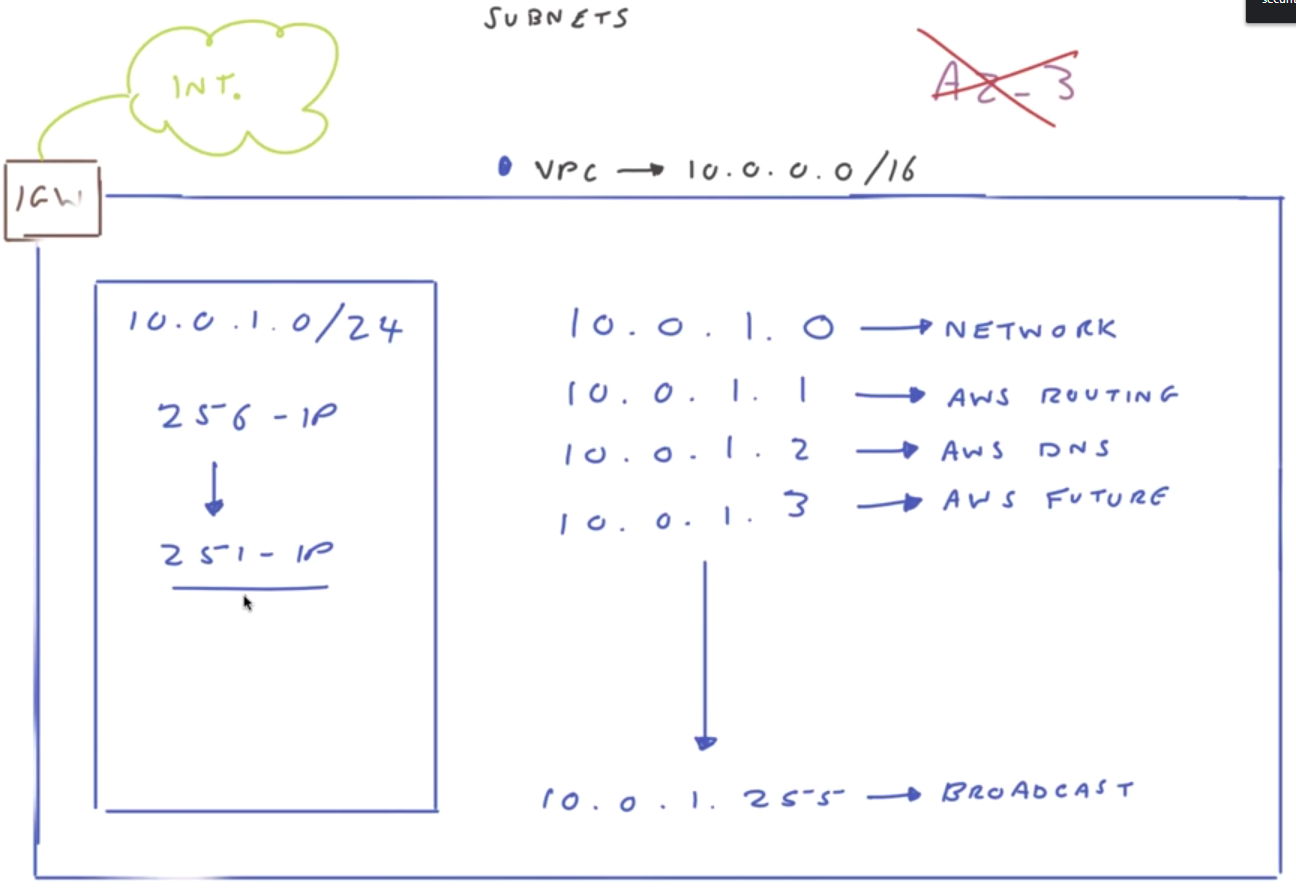 SUBNETS
INT.
AZ-3
VPC → 10.0.0.0/16
IGW
10.0.1.0/24
256-IP
251-IP
10.0.1.0 → NETWORK
10.0.1.1 → AWS ROUTING
10.0.1.2 → AWS DNS
10.0.1.3 → AWS FUTURE
10.0.1.255 → BROADCAST